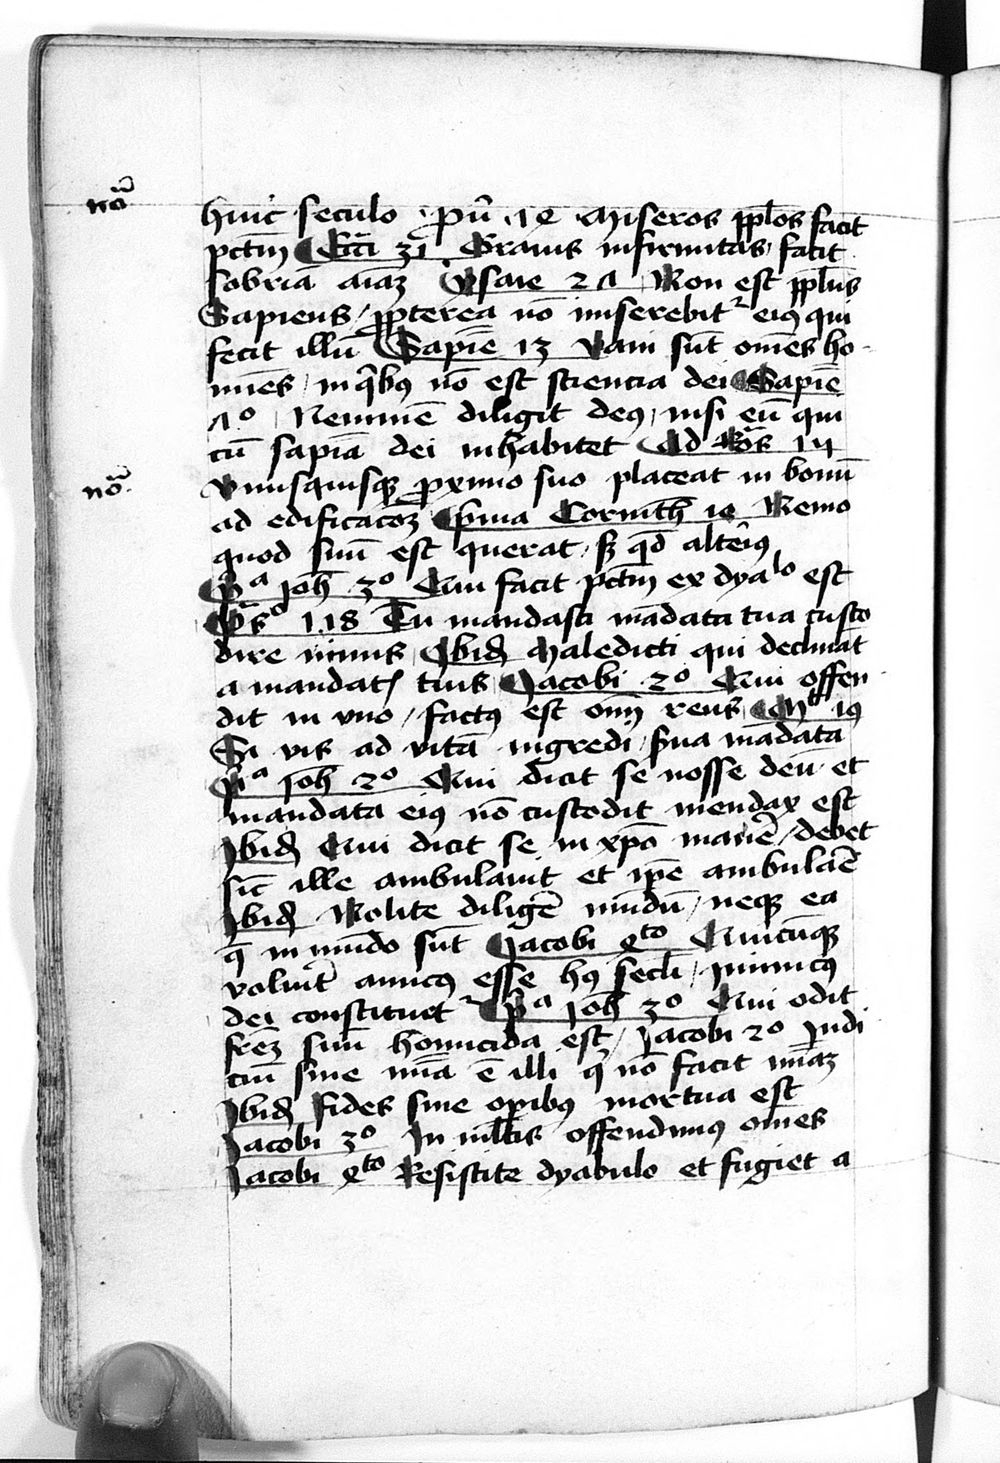 nōa
huic seculo . pū . 14 . Miseros ppl̄os facit
pctm̄ Ecc̄i 31 Grauis infirmitas facit
sobriā aīaʒ Ysaie 27 Non est ppl̄us
Sapiens / ppterea nō miserebitᷣ eiꝰ qui
fecit illū Sapiē 13 Vani sūt om̄es ho
mīes / in qͥbꝫ nō est sciencia dei Sapiē
7º Neminē diligit deꝰ / nisi eū qui
cū sapīa dei inhabitet Ad Ro̅s 14
nōa
Vnusquisqꝫ proximo suo placeat in bonū
ad edificacōeʒ Prima Corinth̄ 10 Nemo
quod suū est querat / sꝫ qd̄ alterīꝰ
Pͥª Joh̄ 3º Qui facit pctm̄ ex dyalo est
Ps̄º 118 Tu mandasti mādata tua custo
dire nimis Ibid̄ Maledicti qui declināt
a mandatꝭ tuis Jacobi 2º Qui offen
dit in vno / factꝰ est om̄ reus Mt̄ 19
Si vis ad vitā ingredi / s̄ua mādata
Pͥª Joh̄ 2º Qui dicit se nosse deū et
mandata eiꝰ nō custodit mendax est
Ibid̄ Qui dicit se in xp̄o manē̄ / debet
sic̄ ille ambulauit et ip̄e ambulaē
Ibid̄ Nolite diligē̄ mūdū / neqꝫ ea
q̄ in mūdo sūt Jacobi 4to Quicūqꝫ
voluīt amicꝰ esse hꝰ secl̄i / inimicꝰ
dei constituetᷣ Pͥª Joh̄ 3º Qui odit
frēʒ suū homicida est / Jacobi 2º Judi
ciū sine mīa ē illi qͥ nō facit mīaʒ
Ibid̄ Fides sine opibꝫ mortua est
Jacobi 3º In ml̄tis offendimꝰ om̄es
Jacobi 4to Resistite dyabulo et fugiet a